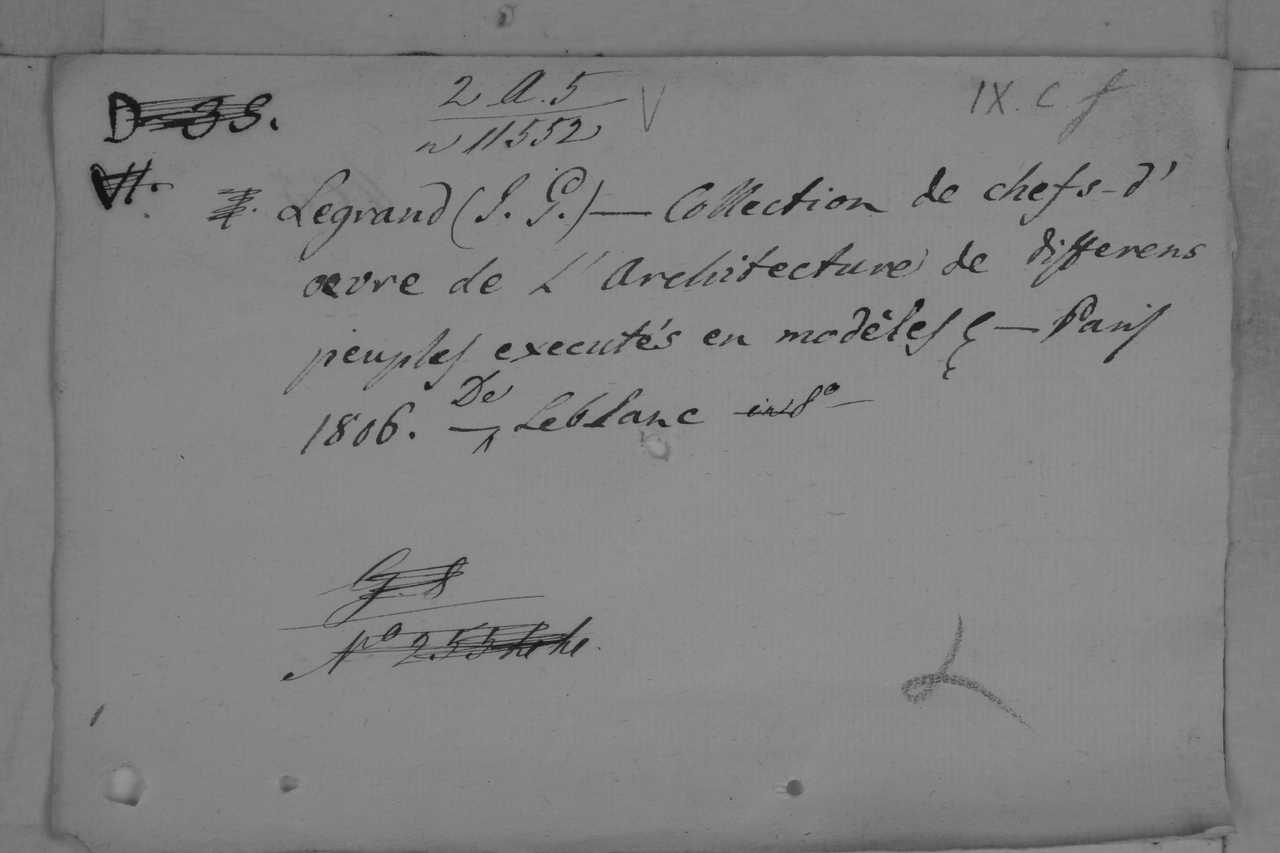 D 38.
2 A. 5
n 11552
V
IX. C f
VI.
Legrand (J. G.) — Collection de chefs-d'
oevre de L'Architecture de differens
peuples executés en modèles & — Paris
1806. — De Leblanc in 8º —
G. 8
Nº 255
L